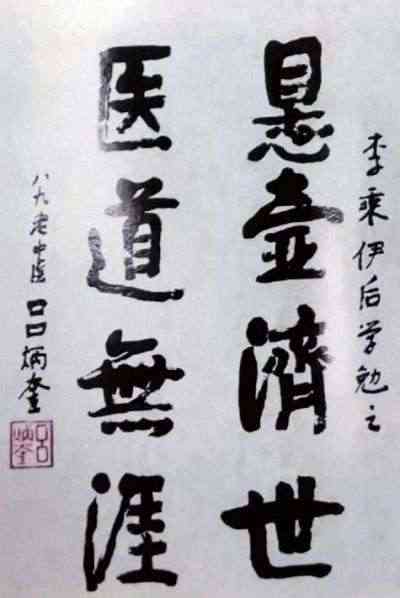 李乘伊后学勉之
悬壶濟世
医道無涯
八九老中医 吕炳奎
吕炳奎